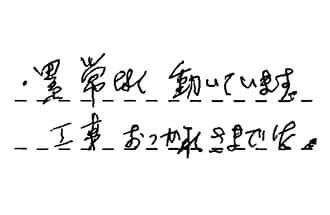 ・異常なく 動いています。
工事 おつかれさまでした。